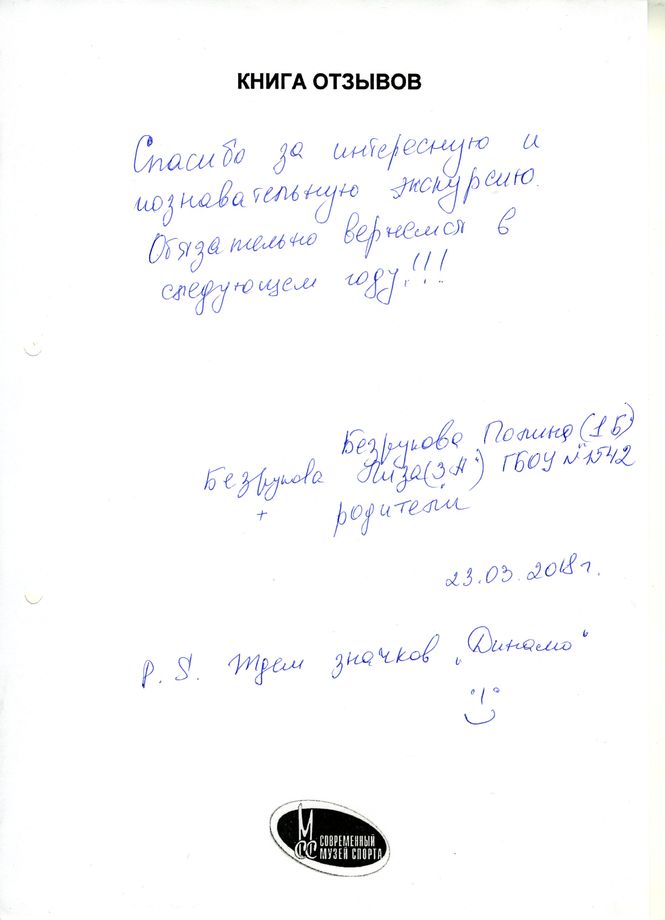 КНИГА ОТЗЫВОВ
Спасибо за интересную и
познавательную экскурсию.
Обязательно вернемся в
следующем году!!!
Безрукова Полина (1Б)
Безрукова Лиза (3"А") ГБОУ №1542
+ родители
23.03.2018г.
P.S. Ждем значков „Динамо"
М
СС СОВРЕМЕННЫЙ
МУЗЕЙ СПОРТА